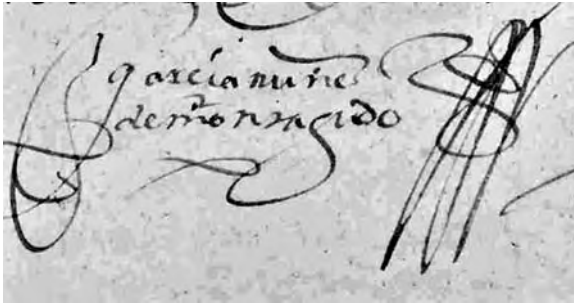 garcia nuñes
demonrragido